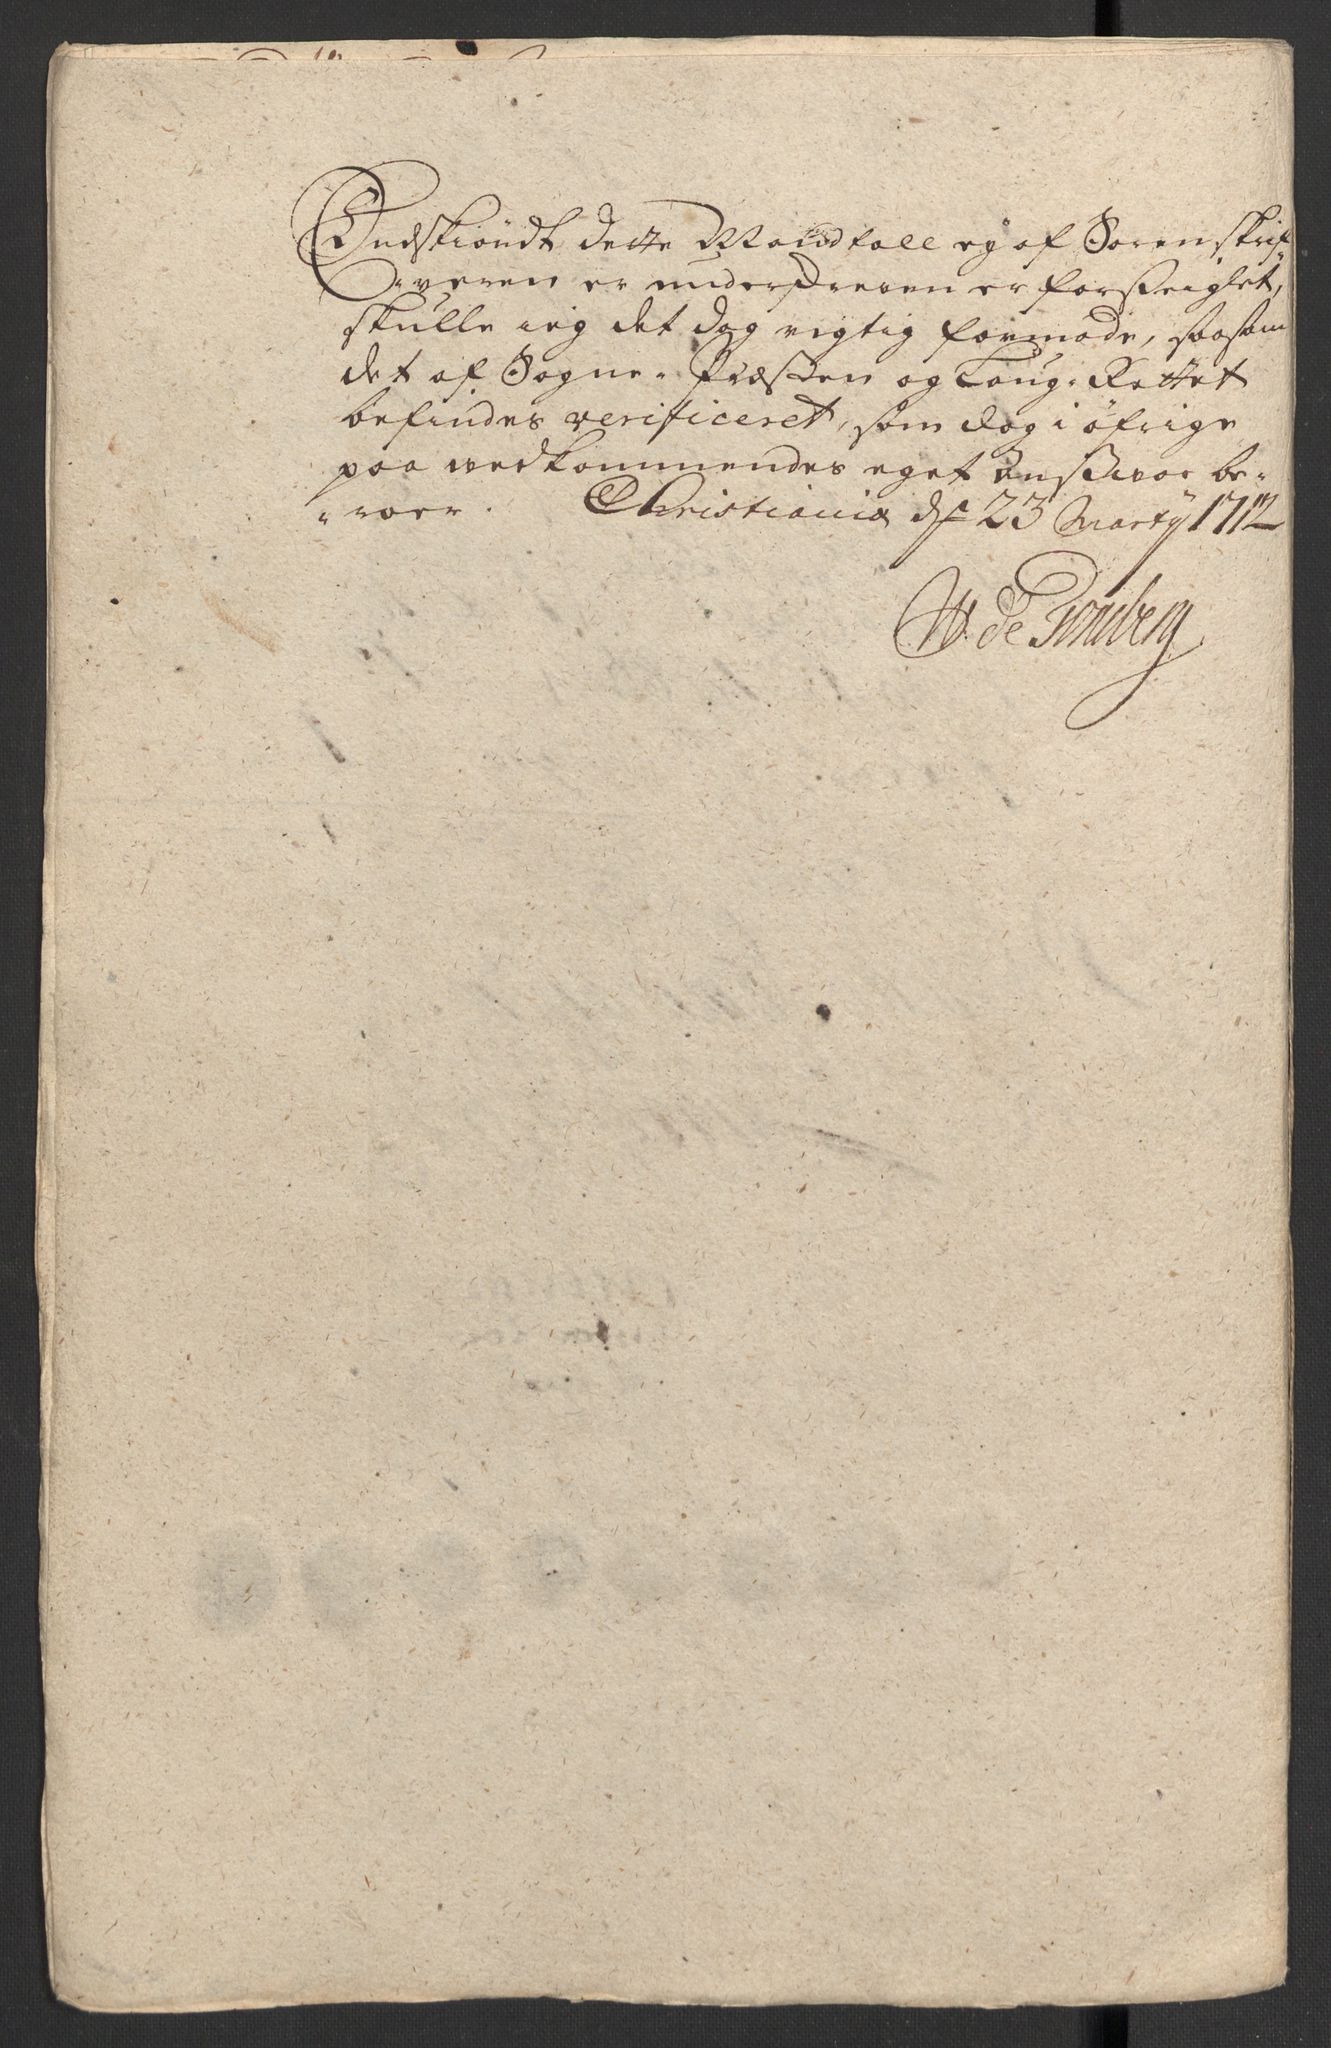 Endskiöndt dette Mandtall ey af Sorenskrif-
-veren er underskreven er forseiglet,
skulle ieg det dog rigtig formode, saasom
det af Sogne-Præsten og Laug-Rettet
befindes verificeret, som dog i öfrige
paa wedkommendes eget ansvar be-
-roer. Christiania dſ 23 Marty 1712
W. de Tonsberg